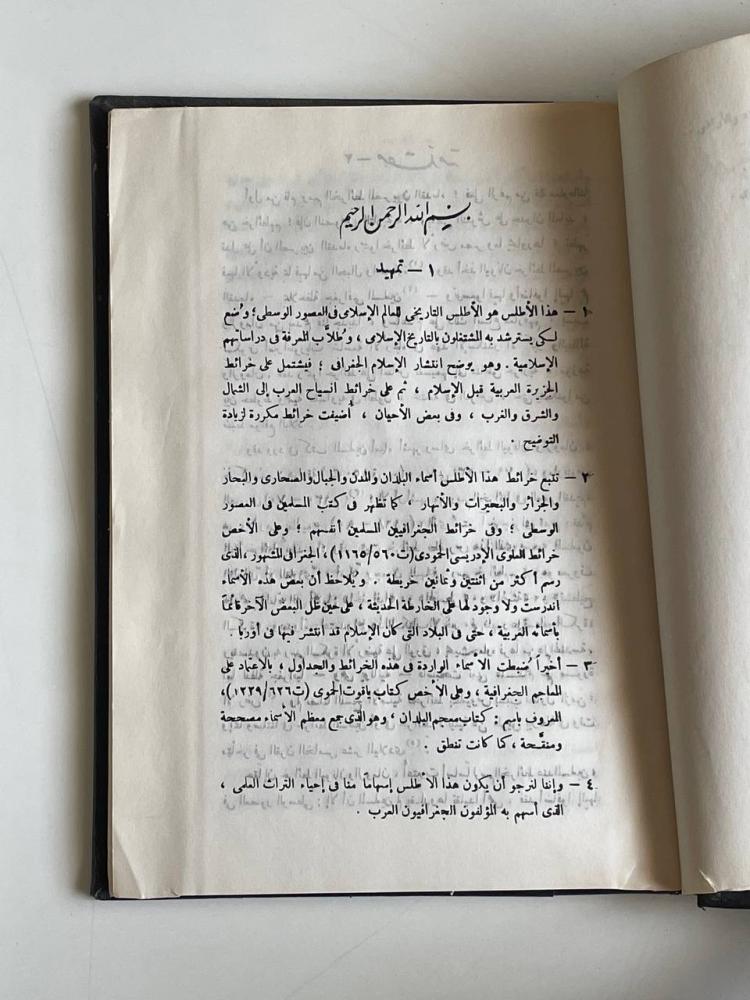 بسم الله الرحمن الرحيم
١ - تمهيد
١ - هذا الأطلس هو الأطلس التاريخي للعالم الإسلامى فى العصور الوسطى؛ وُضع
لكى يسترشد به المشتغلون بالتاريخ الإسلامى، وطُلاَّب المعرفة فى دراساتهم
الإسلامية. وهو يوضح انتشار الإسلام الجغرافى؛ فيشتمل على خرائط
الجزيرة العربية قبل الإسلام، ثم على خرائط انسياح العرب إلى الشمال
والشرق والغرب، وفى بعض الأحيان، أُضيفت خرائط مكررة لزيادة
التوضيح.
٢ - تتبع خرائط هذا الأطلس أسماء البلدان والمدن والجبال والصحارى والبحار
والجزائر والبحيرات والأنهار، كما تظهر فى كتب المسلمين فى العصور
الوسطى؛ وفى خرائط الجغرافيين المسلمين أنفسهم؛ وعلى الأخص
خرائط العلوى الإدريسى الحمودى (ت ١١٦٥/٥٦٠)، الجغرافى المشهور، الذى
رسم أكثر من اثنتين وثمانين خريطة. ويُلاحظ أن بعض هذه الأسماء
اندرست ولا وجود لها على الخارطة الحديثة، على حين ظل البعض الآخر قائمًا
بأسمائه العربية، حتى فى البلاد التى كان الإسلام قد انتشر فيها فى أوربا.
٣ - أخيراً ضُبطت الأسماء الواردة فى هذه الخرائط والجداول، بالاعتماد على
المعاجم الجغرافية، وعلى الأخص كتاب ياقوت الحموى (ت ١٢٢٩/٦٢٦)،
المعروف باسم: كتاب معجم البلدان، وهو الذى جمع معظم الأسماء مصححة
ومنقَّحة، كما كانت تنطق.
٤ - وإننا لنرجو أن يكون هذا الأطلس إسهامًا منا فى إحياء التراث العلمى،
الذى أسهم به المؤلفون الجغرافيون العرب.